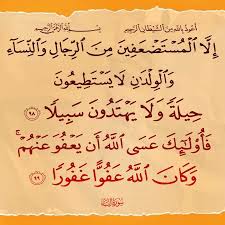 أعوذ بالله من الشيطان الرجيم بسم الله الرحمن الرحيم
إِلَّا الْمُسْتَضْعَفِينَ مِنَ الرِّجَالِ وَالنِّسَاءِ
وَالْوِلْدَانِ لَا يَسْتَطِيعُونَ
حِيلَةً وَلَا يَهْتَدُونَ سَبِيلًا ٩٨
فَأُولَٰئِكَ عَسَى اللَّهُ أَن يَعْفُوَ عَنْهُمْ ۚ
وَكَانَ اللَّهُ عَفُوًّا غَفُورًا ٩٩
سورة النساء